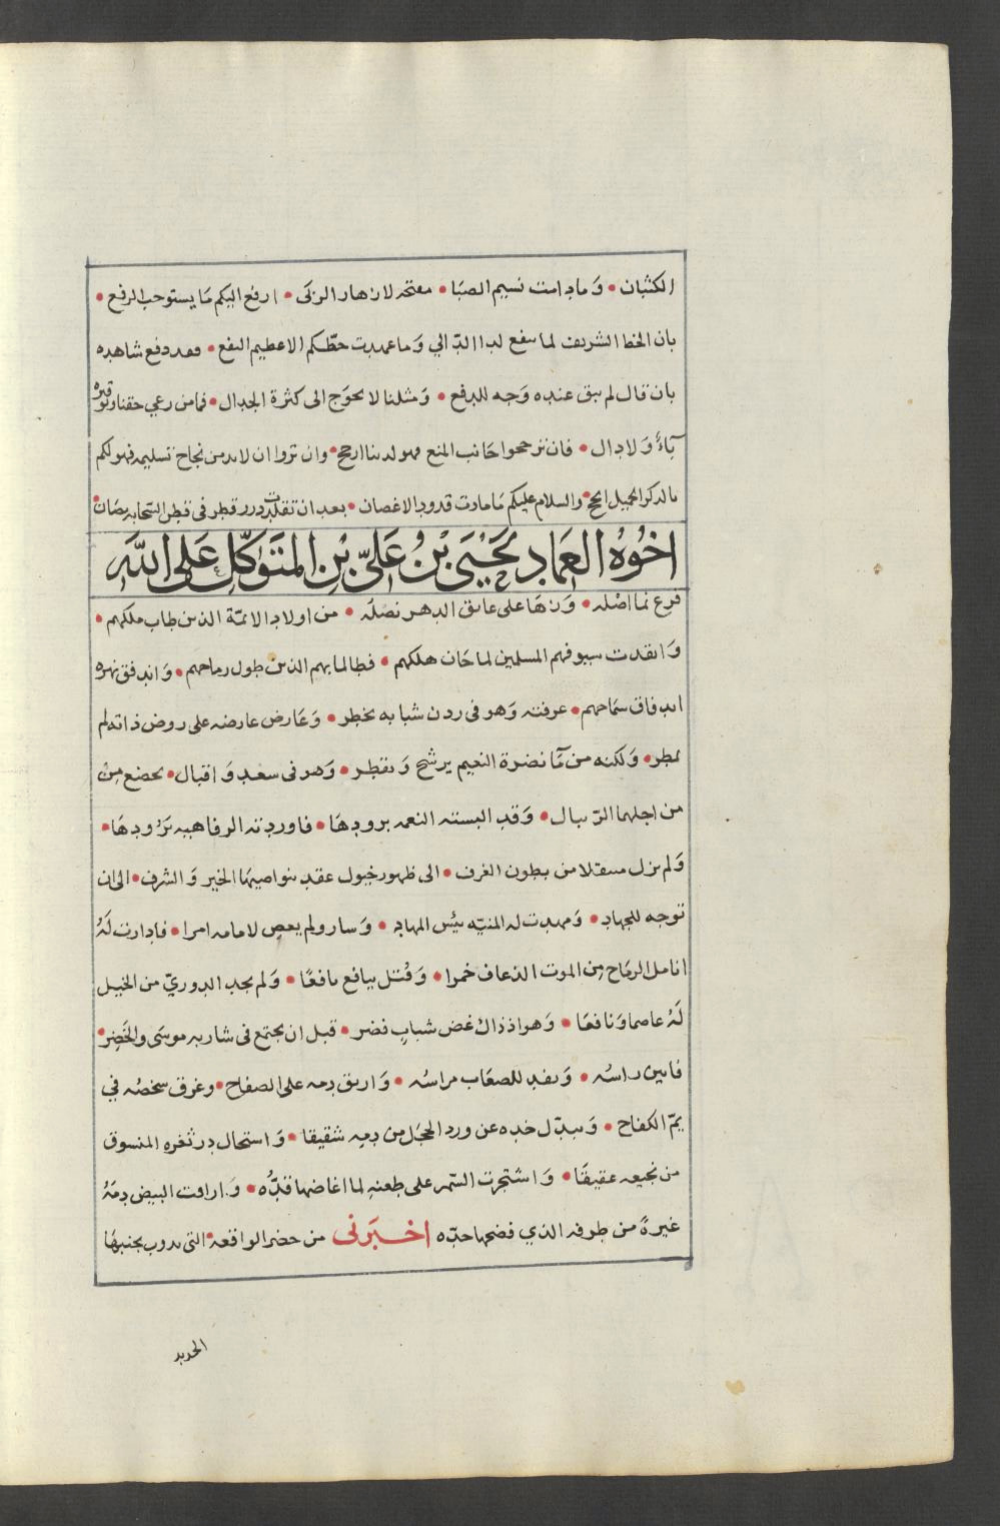 الكثبان • وَمادامت نسيم الصبَا • مفتحه لازهار الربى • ارفع اليكم مَا يستوجب الرفع •
بان الخط الشريف لما سفع لدا الدّالي وَما عهدت حظّكم الا عظيم النفع • فعد دفع شاهده
بان قال لم يبق عنده وَجه للدفع • وَمثلنا لا يحوَج الى كثرة الجدال • فمن رعي حقنا
بآءٌ وَلا دال • فان ترجحوا جَانب المنع فهو لدينا ارجح • وان تروا ان لابد من نجاح تسليمه فهو لكم
بالذكر الجميل انجح • والسلام عليكم مَا مادت قدود الاغصان • بعد ان تقلدت درر قطر في قطر السّحابه
اخُوُهُ العِمَاد يَحْيَى بْنُ عَلىّ بْنِ المتَوَكّلِ عَلى اللهِ
فرع نما اصْله • وَزهَا على عاتق الدهر نصْلَه • من اولاد الائمّة الذين طاب ملكهم •
وَانقدت سيوفهم المسلمين لما حَان هلكهم • فطالما بهم الذين طول رماحهم • وَاندفق نهره
اندفاق سمَاحهم • عرفته وَهو فى ردن شبابه يخطر • وَعَارض عارضه على روض ذاته لم
يمطر • وَلكنه من مَآ نضرة النعيم يرشح وَيقطر • وَهو فى سعد وَاقبال • يخضع مِن
من اجلهما الرّيبال • وَقد البسته النعمه برودهَا • فاوردته الرفاهيه بَرُودهَا •
وَلم يزل متنقلا من بطون الغرف • الى ظهور خيول عقد بنواصيهَا الخير وَالشرف • الى ان
توجه للجهاد • وَمهدت له المنيّه بئس المهاد • وَسار ولم يعص لامامه امرا • فادارت لَهُ
انامل الرمَاح مِن الموت الذعاف خمرا • وَقتل بيافع يافعًا • وَلم يجد الدوريّ من الخيل
لَهُ عاصما وَنافعَا • وَهو اذ ذاك غض شبابٍ نضر • قبل ان يجتمع فى شاربه موسَى والخَضِر •
فابين راسُه • وَنفد للصعَاب مراسُه • وَاريق دمه على الصفاح • وغرق شخصُه في
يمّ الكفاح • وَتبدّل خده عن ورد الخجَل من دمِه شقيقا • وَاستحال در ثغره المنسوق
من نجيعه عقيقًا • وَاشتجرت السّمر على طعنهِ لما اغاضها قدُّه • وَاراقت البيض دمَهُ
غيرةً من طرفه الذي فضحها حدّه اخبَرنى من حضر الواقعه • التى يدوب بجنبهَا
الحديد